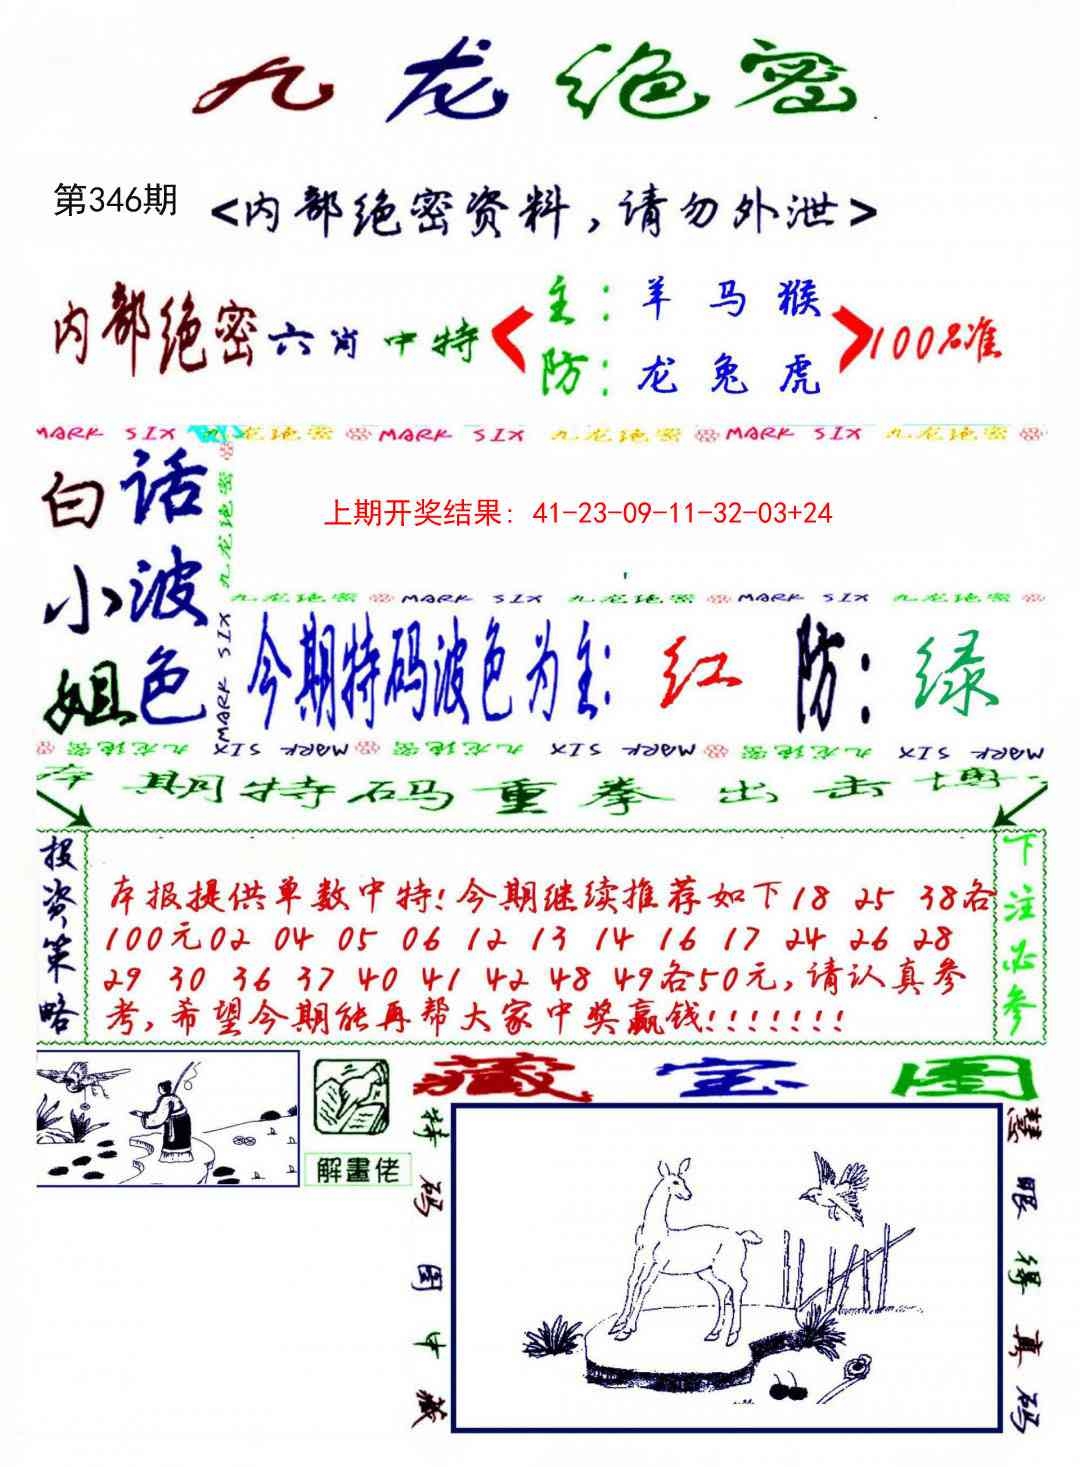 九龙绝密
第346期
<内部绝密资料,请勿外泄>
内部绝密六肖中特
主:羊 马 猴
防:龙 兔 虎
100%准
MARK SIX 九龙绝密 MARK SIX 九龙绝密 MARK SIX 九龙绝密
白话
小波
姐色
九龙绝密
MARK SIX
上期开奖结果: 41-23-09-11-32-03+24
九龙绝密 MARK SIX 九龙绝密 MARK SIX 九龙绝密
今期特码波色为主:红 防:绿
九龙绝密 MARK SIX 九龙绝密 MARK SIX 九龙绝密 MARK SIX
本期特码重拳出击博
投资策略
本报提供单数中特!今期继续推荐如下18 25 38各
100元02 04 05 06 12 13 14 16 17 24 26 28
29 30 36 37 40 41 42 48 49各50元,请认真参
考,希望今期能再帮大家中奖赢钱!!!!!!!
下注必参
解畫佬
藏宝图
特码图中藏
慧眼得真码